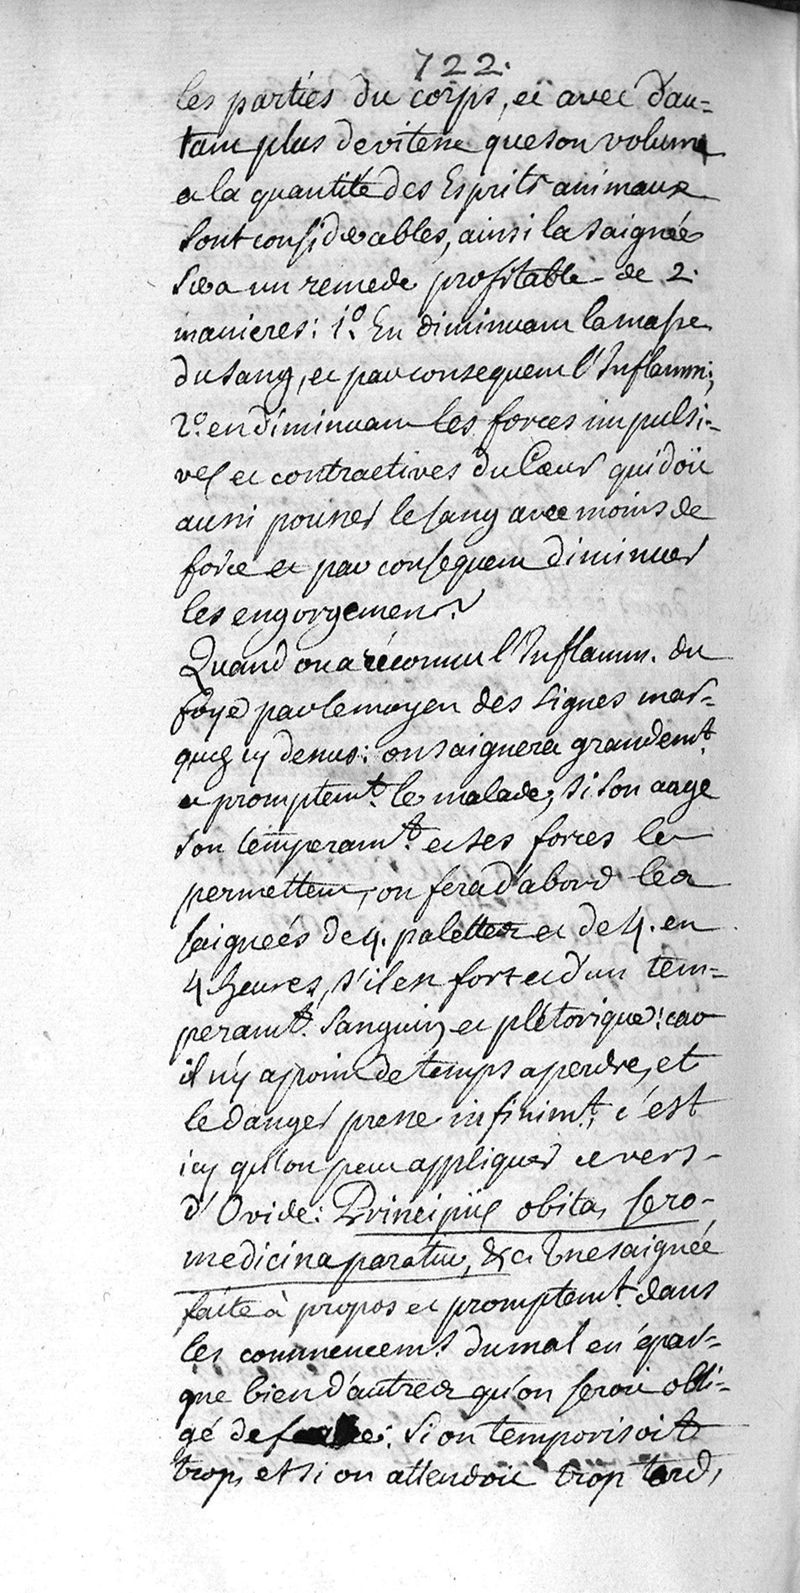 722.
les parties du corps, et avec d'au=
tant plus de vitesse que son volume
et la quantité des Esprits animaux
sont considerables, ainsi la saignée
sera un remede profitable de 2.
manieres: 1.° En diminuant la masse
du sang, et par consequent l'Inflamm:;
2.° en diminuant les forces impulsi=
ves et contractives du Cœur qui doit
aussi pousser le sang avec moins de
force et par consequent diminuer
les engorgemens.
Quand on a réconnu l'Inflamm. du
foye par le moyen des signes mar=
quez cy dessus: on saignera grandemt.
et promptemt. le malade, si son aage
son temperamt. et ses forces le
permettent, on fera d'abord les
saigneés de 4. palettes et de 4. en
4 heures, s'il est fort et d'un tem=
peramt. sanguin et plétorique: car
il n'y a point de temps a perdre, et
le danger presse infinimt., c'est
icy qu'on peut appliquer ce vers
d'Ovide: Principiis obsta, sero
medicina paratur, &c. Une saignée
faite à propos et promptemt. dans
les commencemts du mal en épar=
gne bien d'autres qu'on seroit obli=
gé de faire: si on temporisoit
trop, et si on attendoit trop tard,